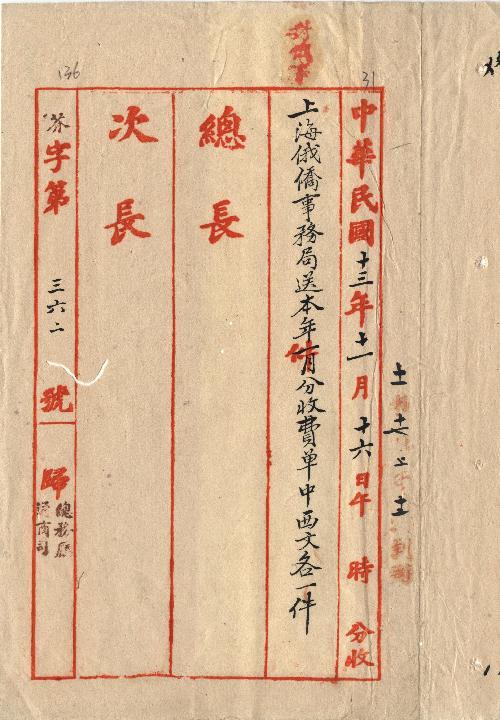 136
31
中華民國十三年十一月十六日午 時 分收
上海俄僑事務局送本年 月分收費单中西文各一件
總長
次長
字第三六二號
歸
總務廳
商司